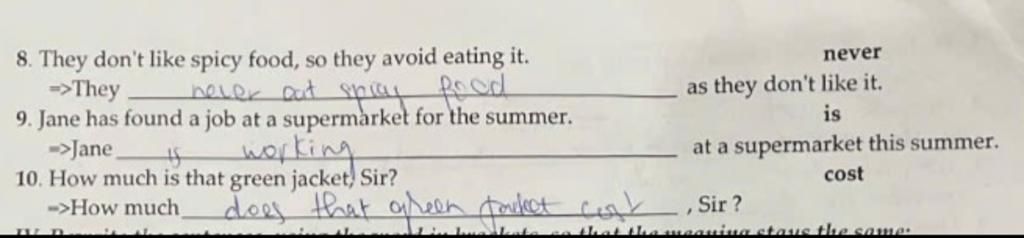 8. They don't like spicy food, so they avoid eating it. never
=>They never eat spicy food as they don't like it.
9. Jane has found a job at a supermarket for the summer. is
=>Jane is working at a supermarket this summer.
10. How much is that green jacket, Sir? cost
=>How much does that green jacket cost , Sir ?
so that the meaning stays the same: